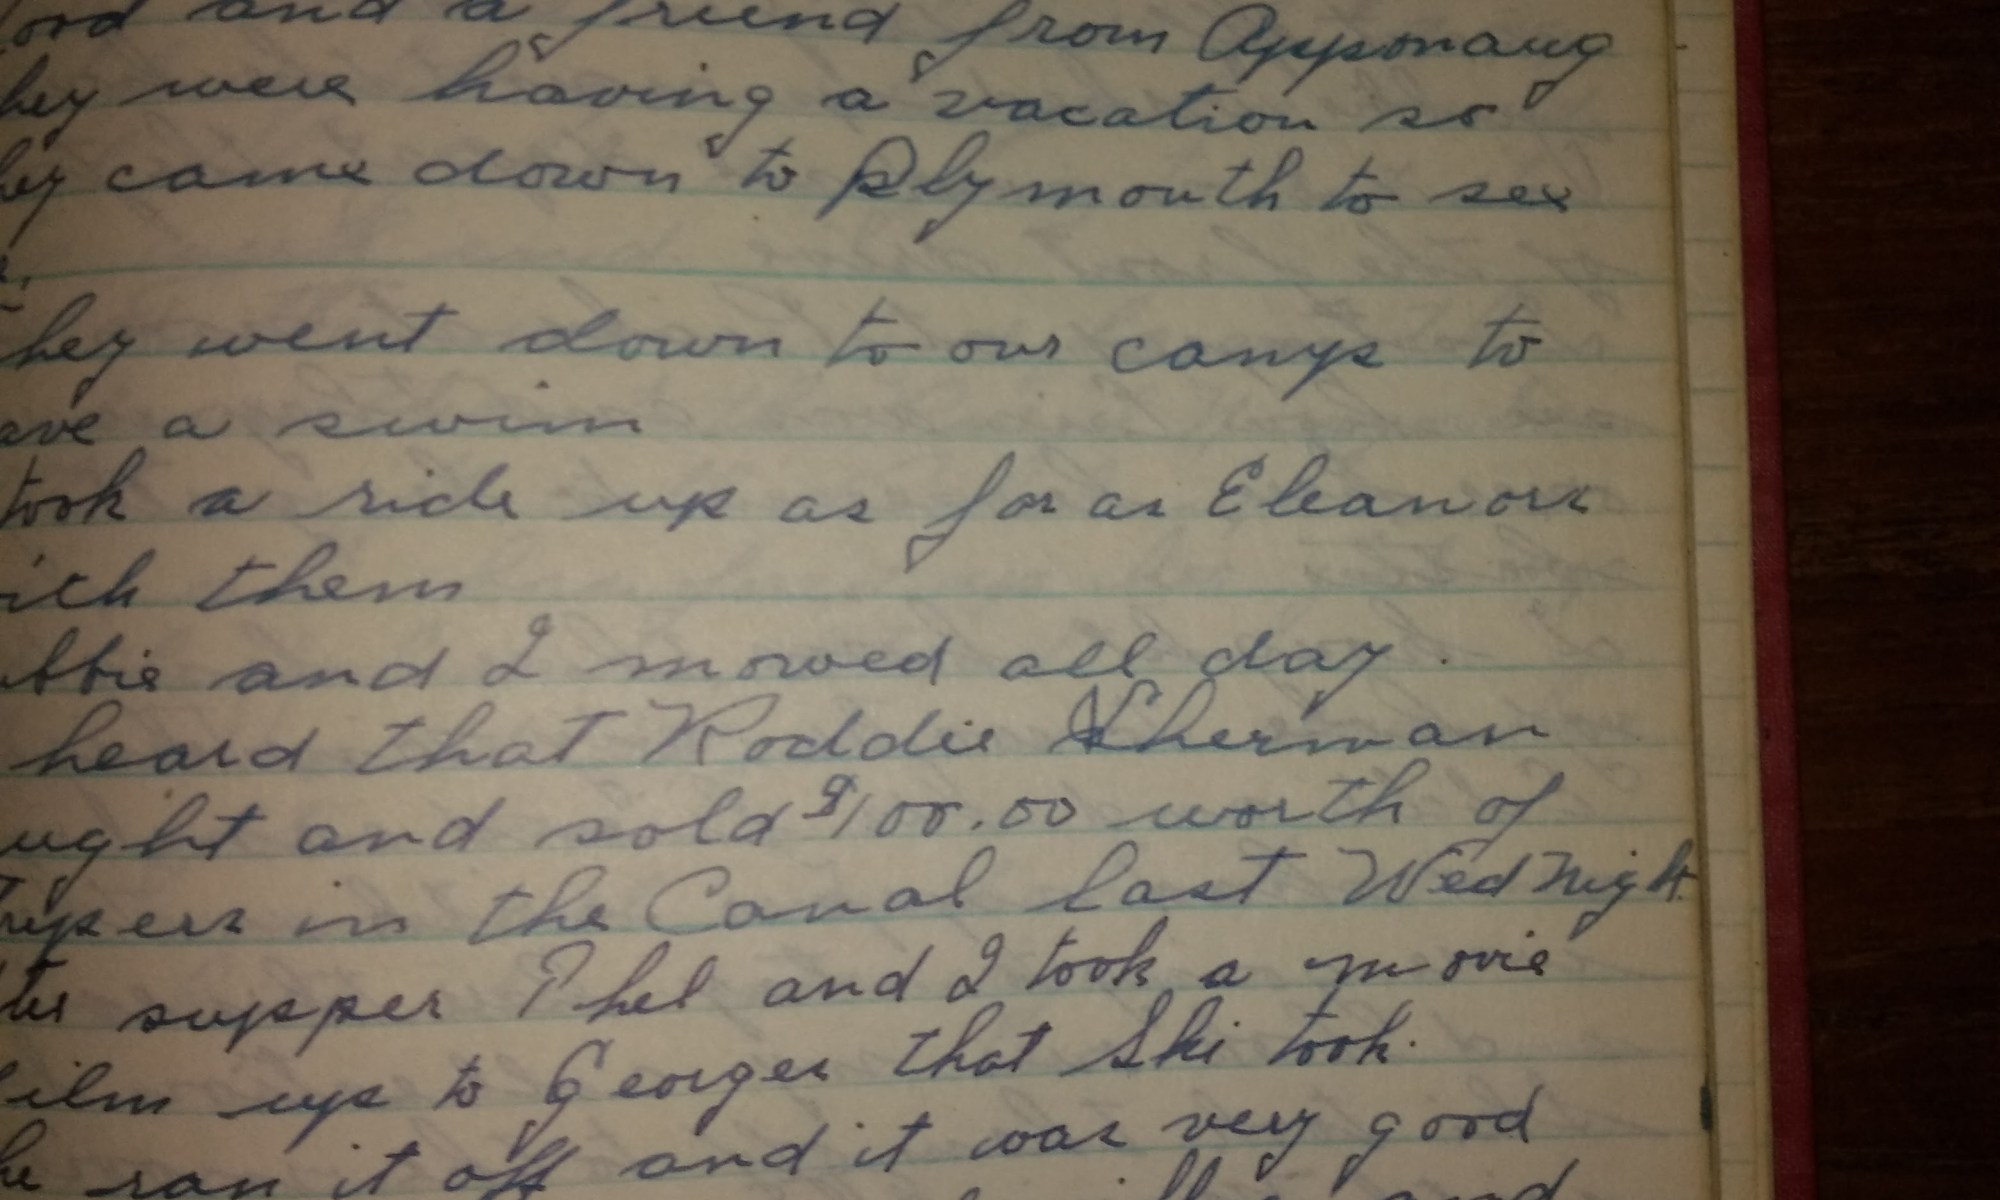 and a friend from Apponaug
were having a vacation so
came down to Plymouth to see
went down to our camp to
a swim
took a ride up as far as Eleanors
them
and I mowed all day.
heard that Roddie Sherman
and sold $100.00 worth of
in the Canal last Wed Night.
supper Phel and I took a movie
film up to Georges that Ski took.
he ran it off and it was very good
and